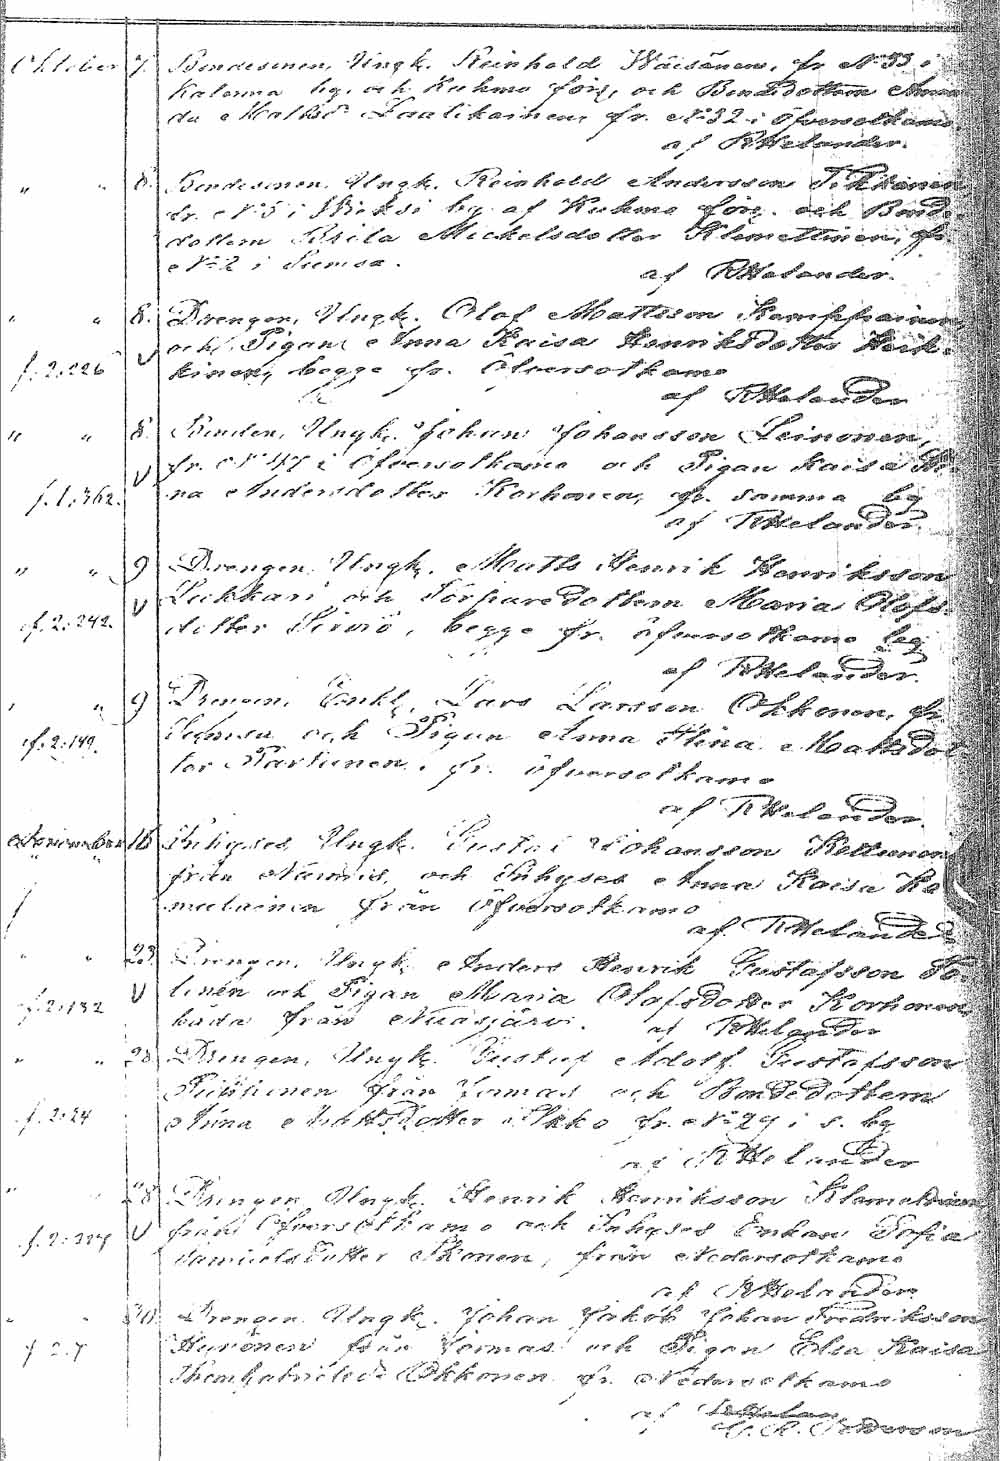 Oktober 7. Bondesonen, Ungk. Reinhold Wäisänen, fr. N:33 i
Katerma by, och Kuhmo förs. och Bondedottern Anna
Matts Laatikainen, fr. N:32 i Öfversotkamo.
af RHelander.
" " 8. Bondesonen, Ungk. Reinhold Andersson Tikkanen
fr. N:5 i Wieksi by af Kuhmo förs. och Bonde-
dottern Brita Mickelsdotter Klemettinen, fr.
N:2 i Sumsa.
af RHelander.
" " 8. Drengen, Ungk. Olof Mattsson Kamppainen
f. 2:226 och Pigan Anna Kaisa Henriksdotter Heik-
kinen, begge fr. Öfversotkamo
af RHelander
" " 8. Bonden, Ungk. Johan Johansson Leinonen,
fr. N:47 i Öfversotkamo och Pigan Kaisa Sti-
f. 1:362. na Andersdotter Korhonen, fr. samma by
af RHelander.
" " 9 Drengen, Ungk. Matts Henrik Henriksson
Lukkari och Torparedottern Maria Olofs-
f. 2:242. dotter Sirviö, begge fr. Öfversotkamo by
af RHelander.
" " 9 Drengen, Enkl. Lars Larsson Okkonen, fr.
f. 2:149. Sumsa och Pigan Anna Stina Mattsdot
ter Partanen, fr. Öfversotkamo
af RHelander.
November 16 Inhyses Ungk. Gustaf Johansson Kettunen
" " från Nuamis, och Inhyses Anna Kaisa Ka
mulainen från Öfversotkamo
af RHelander
" " 23. Drengen, Ungk. Anders Henrik Gustafsson To-
f. 2:132 lonen och Pigan Maria Olofsdotter Korhonen
båda från Nuasjärvi. af RHelander
" " 28 Drengen, Ungk. Gustaf Adolf Gustafsson
från Jormas och Bondedottern
f. 2:24 Anna Mattsdotter Mikko fr. N:29 i s. by
af RHelander
" 28 Drengen Ungk. Henrik Henriksson Klemettinen
f. 2:227 från Öfversotkamo och Inhyses Enkan Sofia
Samuelsdotter Moisanen, från Nedersotkamo
af RHelander
" " 30 Drengen Ungk. Johan Jakob Johan Fredriksson
f 2:7 Hyvönen från Jormas och Pigan Elsa Kaisa
Okkonen fr. Nedersotkamo
af